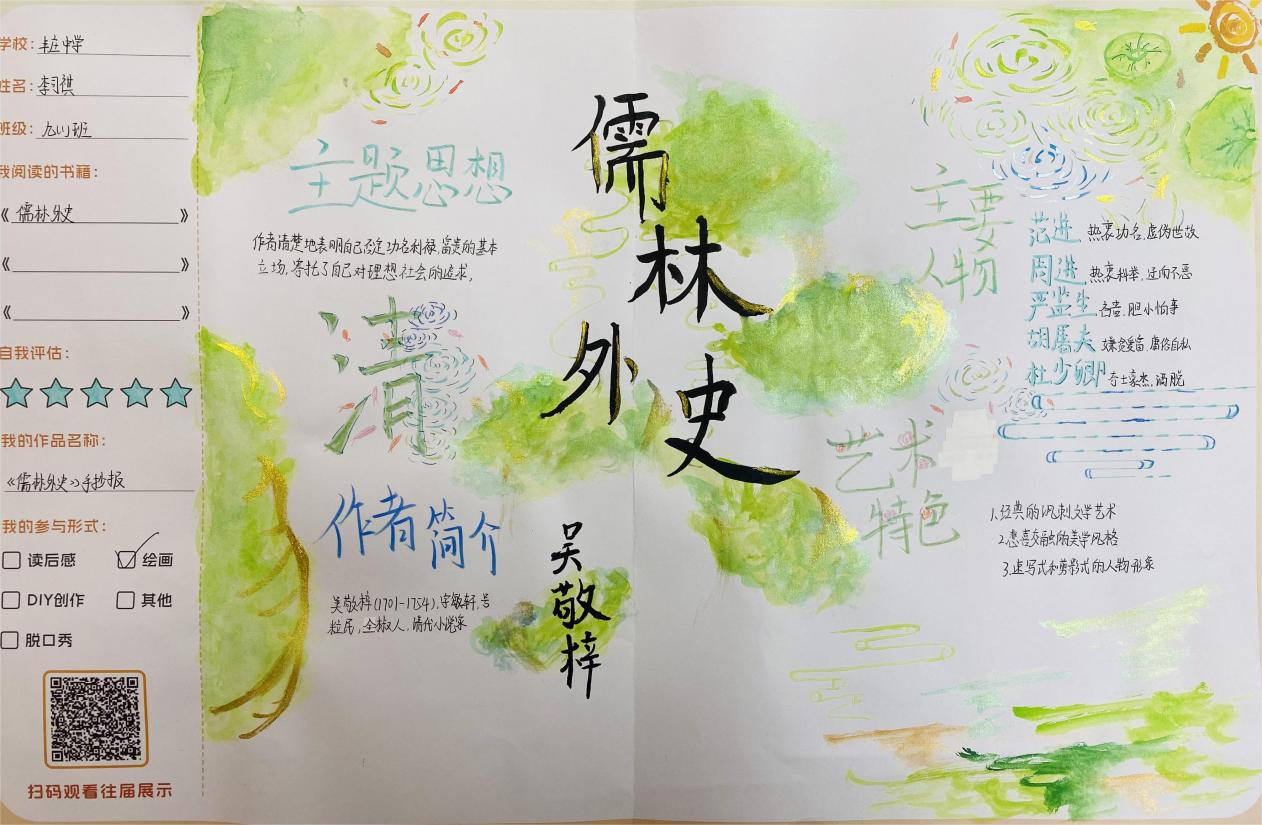 学校：丰庄中学
姓名：李习祺
班级：九(1)班
我阅读的书籍：
《儒林外史》
《 》
《 》
自我评估：
我的作品名称：
《儒林外史》手抄报
我的参与形式：
读后感
绘画
DIY创作
其他
脱口秀
扫码观看往届展示
主题思想
作者清楚地表明自己否定功名利禄,富贵的基本
立场,寄托了自己对理想社会的追求。
清
作者简介
吴敬梓(1701-1754),字敏轩,号
粒民,全椒人,清代小说家
儒林外史
吴敬梓
主要
人物
范进 热衷功名,虚伪世故
周进 热衷科举,迂而不恶
严监生 吝啬,胆小怕事
胡屠夫 嫌贫爱富,庸俗自私
杜少卿 奇士豪杰,洒脱
艺术
特色
1.经典的讽刺文学艺术
2.悲喜交融的美学风格
3.速写式和剪影式的人物形象